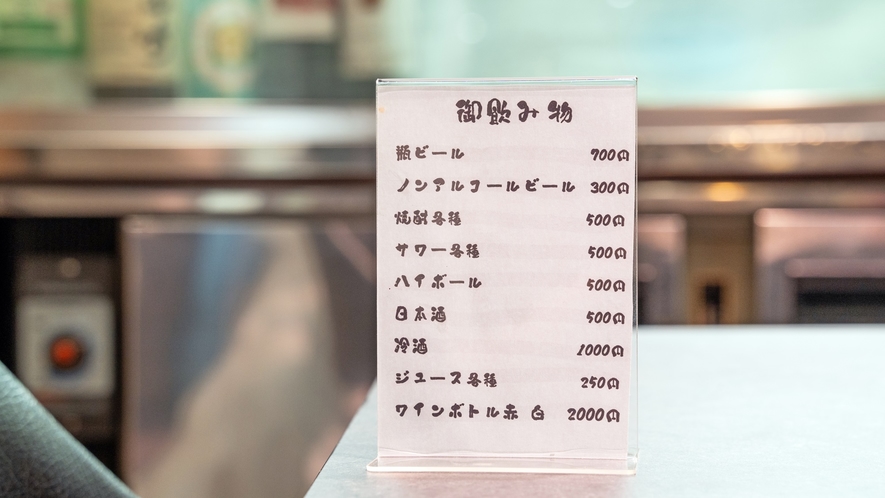 御飲み物
瓶ビール 700円
ノンアルコールビール 300円
焼酎各種 500円
サワー各種 500円
ハイボール 500円
日本酒 500円
冷酒 1000円
ジュース各種 250円
ワインボトル赤 白 2000円